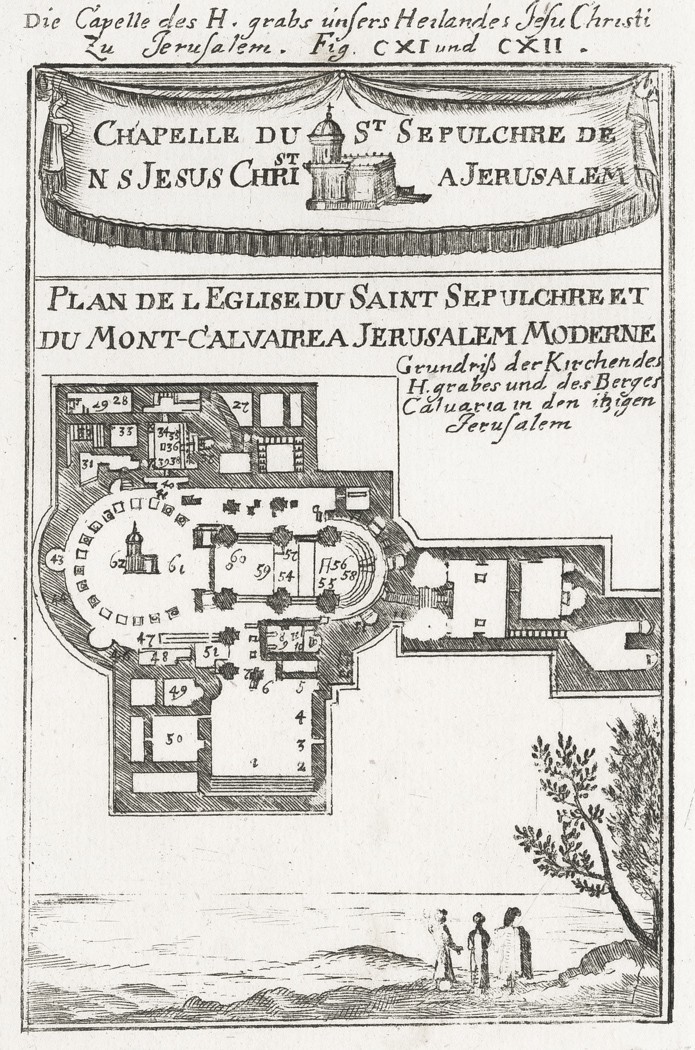 Die Capelle des H. grabs ünsers Heilandes Jesu Christi
Zu Jerusalem. Fig. CXI und CXII.
CHAPELLE DU ST SEPULCHRE DE
N S JESUS CHRIST A JERUSALEM
PLAN DE L EGLISE DU SAINT SEPULCHRE ET
DU MONT-CALVAIRE A JERUSALEM MODERNE
Grundriß der Kirchen des
H. grabes und des Berges
Calvaria in den itzigen
Jerusalem
49 28 27
33 34 35
36
31 39 38
40
43 62 61 60 59 57 54 56 58
55
47
48 51
49 6 5
4
50 3
1 2